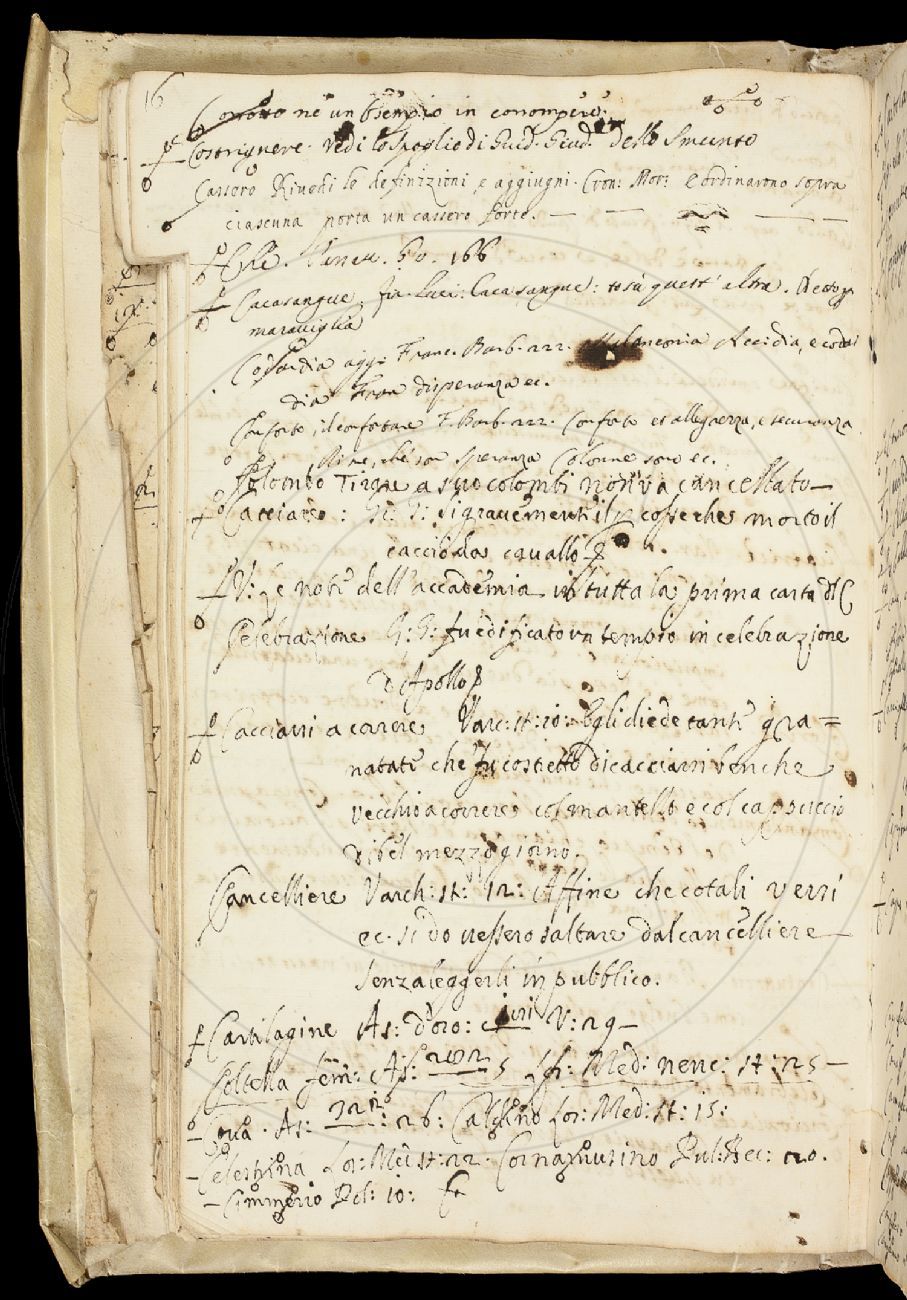 16
Corrotto ne un Esempio in corrompere.
Costrignere. Vedi lo spoglio di Guid. Giud. dello Smunto
Cassero Rivedi le definizioni, e aggiugni. Cron: Mor: e ordinarono sopra
ciascuna porta un cassero forte.
166
Cacasangue; fir. Luci: Cacasangue: to sù quest' altra.
maraviglia
Codardia agg: Franc. Barb. 212. Melanconia Accidia, e codar
dia Fran disperanza ec.
Conforto, il confortare F. Barb. 212. Conforto et allegrezza, e sicuranza
speranza Colonne sono ec.
Colombo Tirare a suo colombi non va cancellato
Cacciare: G: G: si gravemente il percosse che morto il
cacciò da cavallo
V: le note dell'accademia in tutta la prima carta d'C
Celebrazione G: G: fu edificato un tempio in celebrazione
d'Apollo
Cacciarsi a correre Varc: st: 10: Egli diede tante gra=
natate che fu costretto di cacciarsi benche
vecchio a correre col mantello e col cappuccio
di bel mezzo giorno.
Cancelliere Varch: st: 12: Affine che cotali versi
ec. si dovessero saltare dal cancelliere
senza leggerli in pubblico.
Cartilagine As: d'oro: V: 29
Coltella fem: As: 202 5 Lor: Med: nenc: st: 25
Cova. As: 322: 26: Calcino Lor: Med: st: 15:
Celestrina Lor: Med st: 22. Cornamusino Pul: Bec: 20.
Cimmerio Pol: 10: